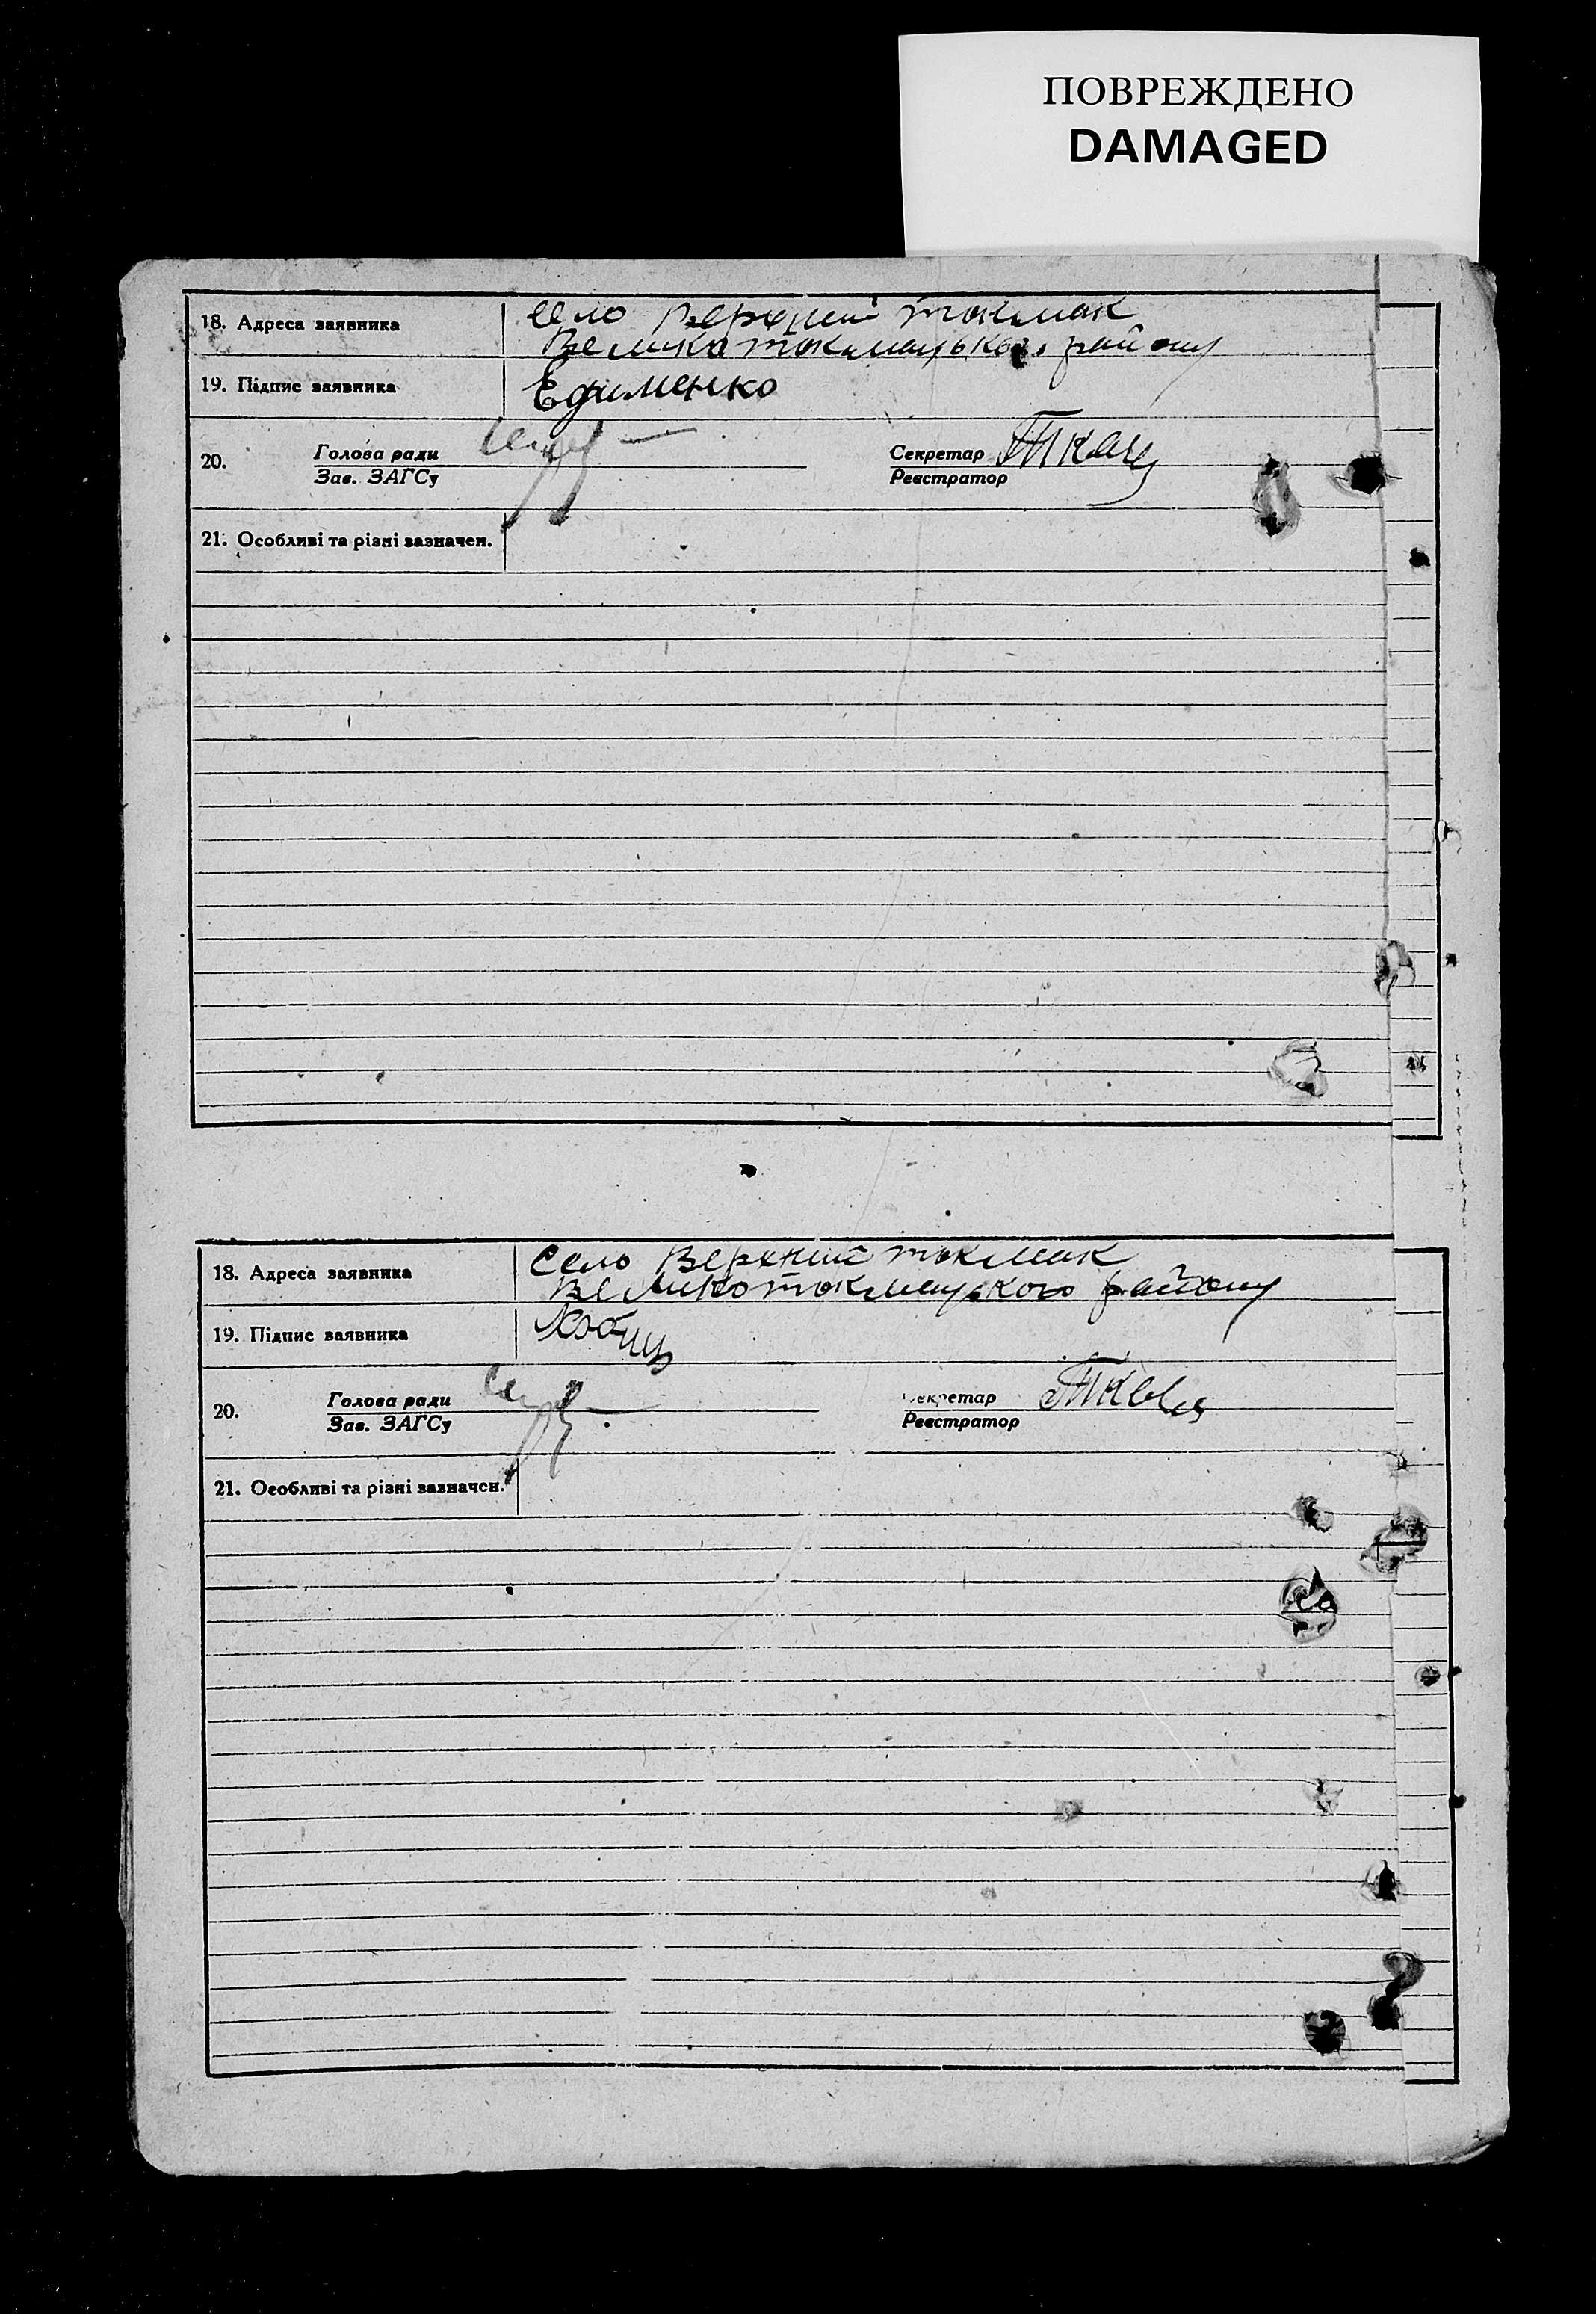 ПОВРЕЖДЕНО
DAMAGED
18. Адреса заявника село Верхний токмак
Великотокмацького району
19. Підпис заявника Ефименко
20. Голова ради Секретар
Зав. ЗАГСу Реєстратор
21. Особливі та різні зазначен.
18. Адреса заявника Село Верхний токмак
Великотокмацького району
19. Підпис заявника
20. Голова ради Секретар
Зав. ЗАГСу Реєстратор
21. Особливі та різні зазначен.